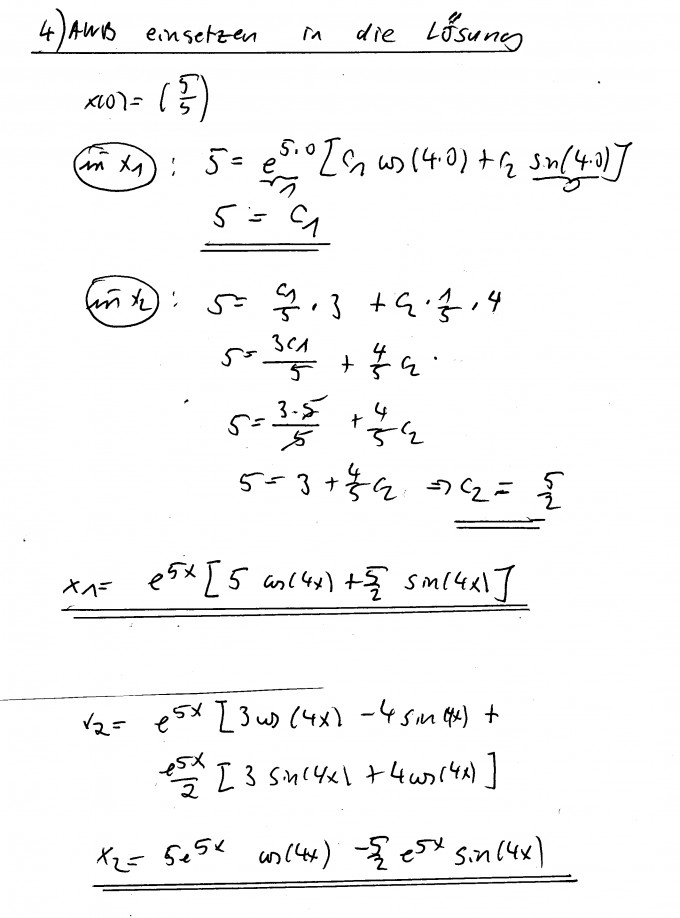 4) AWB einsetzen in die Lösung
x(0) = (5/5)
in x₁ : 5 = e^5·0 [C₁ cos(4·0) + C₂ sin(4·0)]
1 0
5 = C₁
in x₂ : 5 = C₁/5 · 3 + C₂ · 1/5 · 4
5 = 3C1/5 + 4/5 C₂
5 = 3·5/5 + 4/5 C₂
5 = 3 + 4/5 C₂ ⇒ C₂ = 5/2
x₁ = e^5x [5 cos(4x) + 5/2 sin(4x)]
x₂ = e^5x [3 cos(4x) - 4 sin(4x) +
e^5x/2 [3 sin(4x) + 4 cos(4x)]
x₂ = 5e^5x cos(4x) - 5/2 e^5x sin(4x)